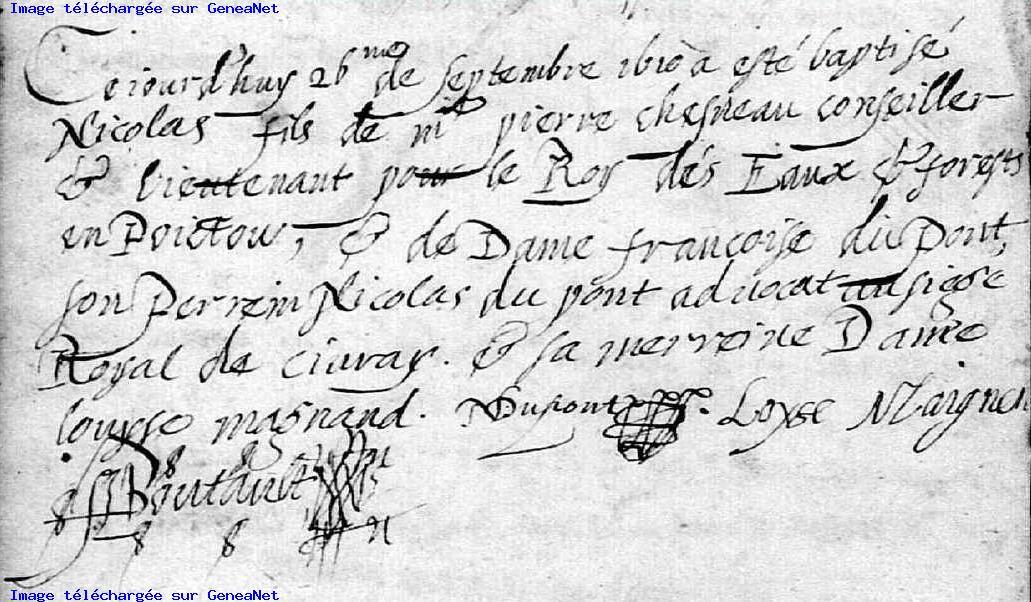 Image téléchargée sur GeneaNet
Ceiourd'huy 26me de septembre 1610 a esté baptisé
Nicolas fils de me pierre chesneau conseiller
& lieutenant pour le Roy dés Eaux & forests
en Poictou, & de Dame françoise du Pont,
son Perrein Nicolas du pont advocat au siege
Royal de Civray. & sa merreine Dame
louyse magnand. NDupont. Loyse Maignen
Boutault
Image téléchargée sur GeneaNet